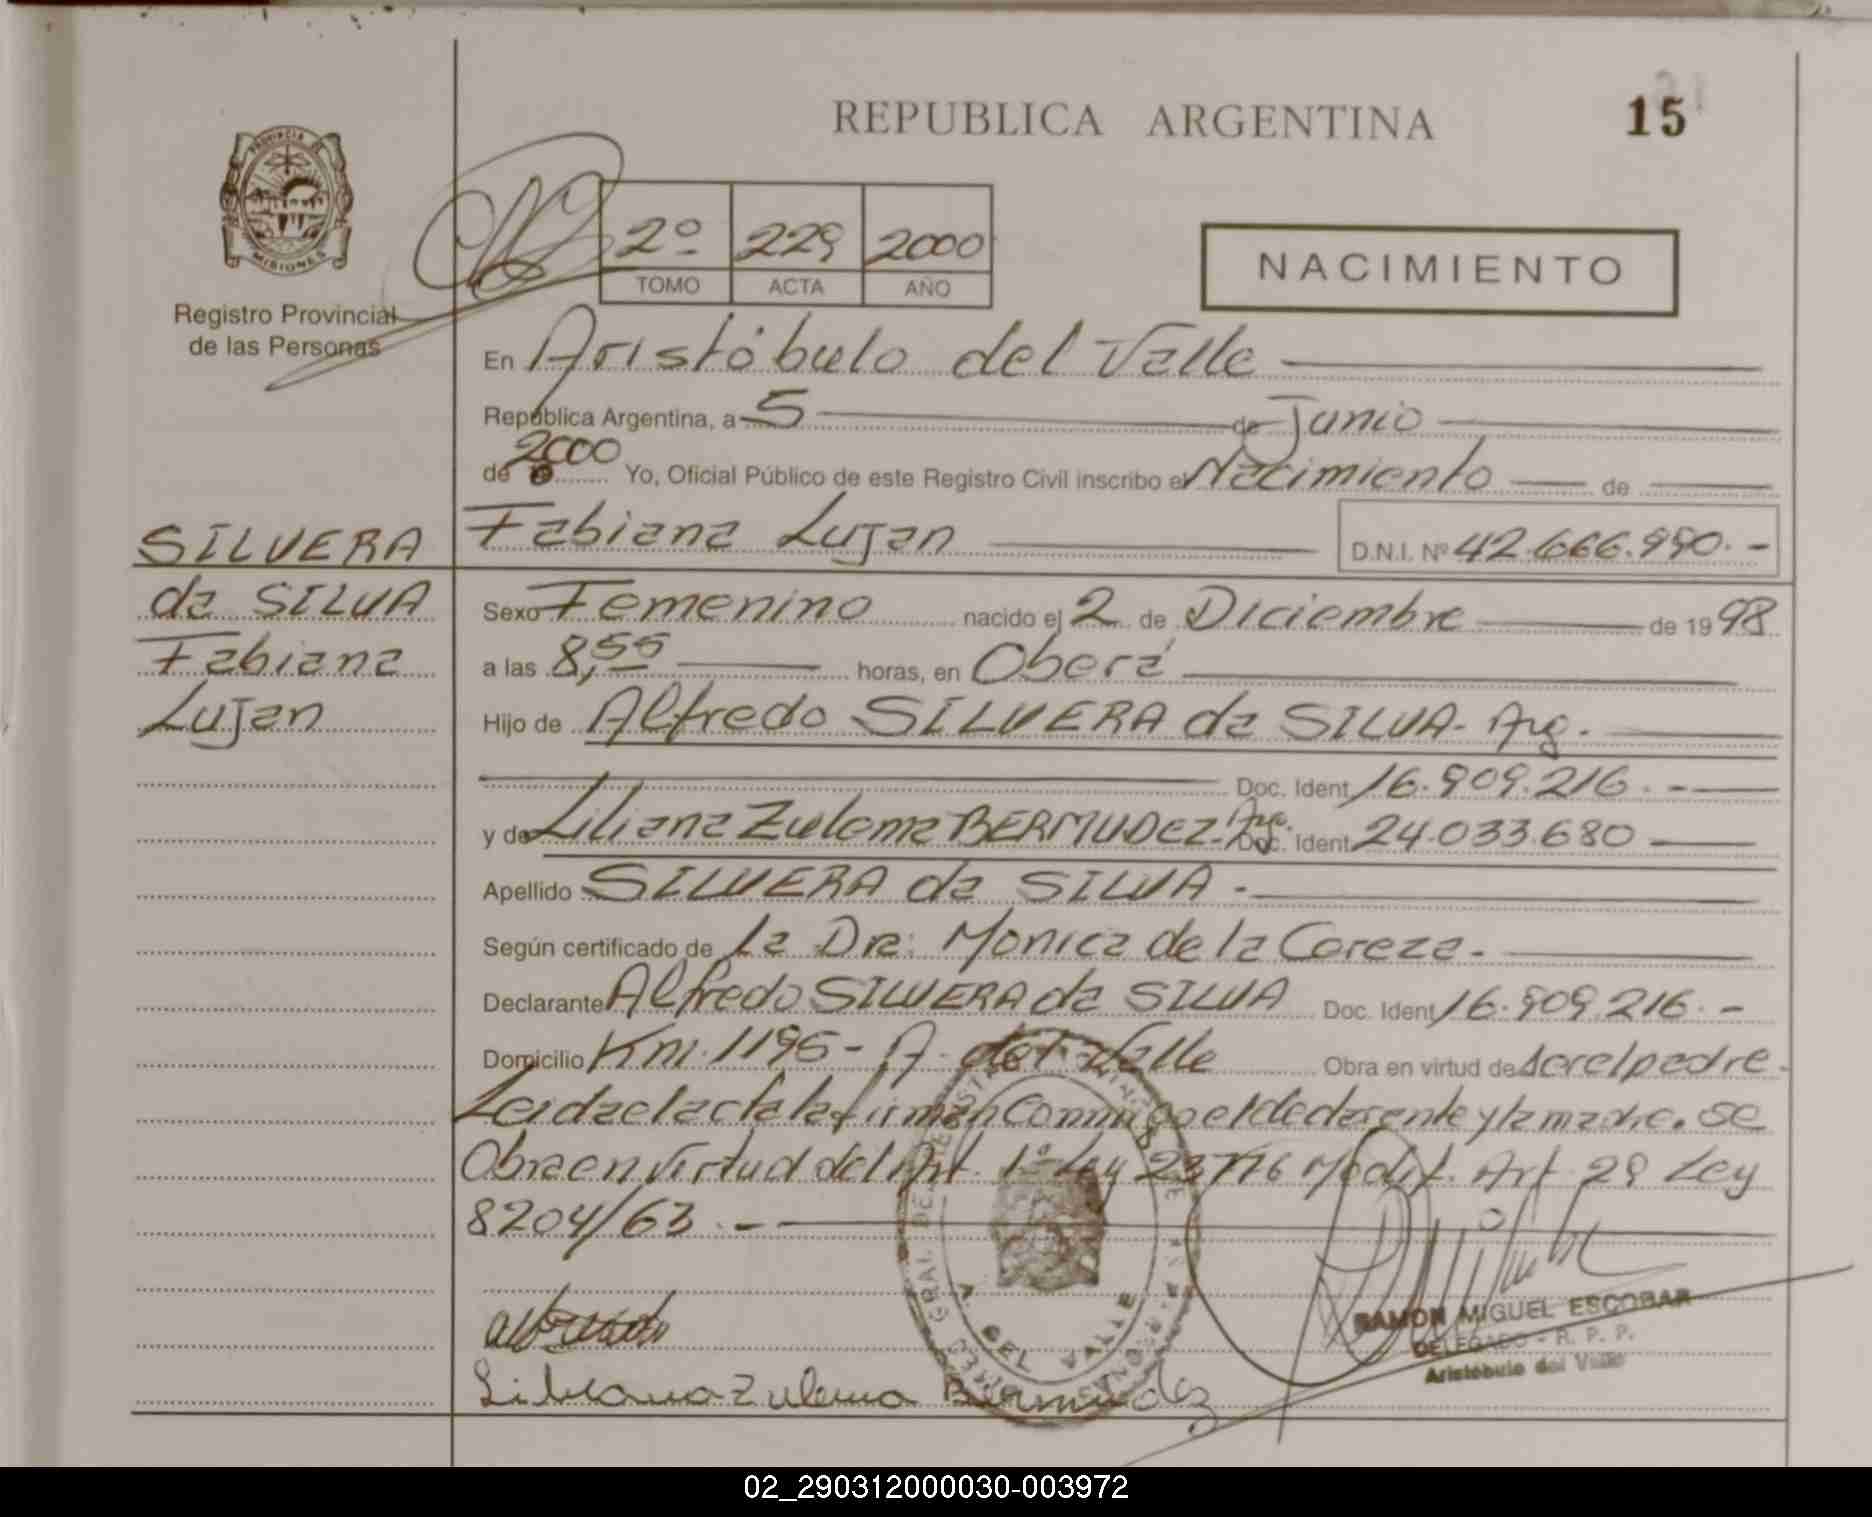 REPUBLICA ARGENTINA
15
PROVINCIA DE
MISIONES
Registro Provincial
de las Personas
2º 229 2000
TOMO ACTA AÑO
NACIMIENTO
En Aristóbulo del Valle
República Argentina, a 5 de Junio
de 2000 Yo, Oficial Público de este Registro Civil inscribo el Nacimiento de
SILVERA
da SILVA
Fabiana
Lujan
Fabiana Lujan D.N.I. Nº 42.666.990.-
Sexo Femenino nacido el 2 de Diciembre de 1998
a las 8,55 horas, en Oberá
Hijo de Alfredo SILVERA da SILVA - Arg.
Doc. Ident. 16.909.216.-
y de Liliana Zulema BERMUDEZ - Arg. Doc. Ident. 24.033.680
Apellido SILVERA da SILVA.-
Según certificado de La Dra: Monica de la
Declarante Alfredo SILVERA da SILVA Doc. Ident. 16.909.216.-
Domicilio Km. 1196 - A. del Valle Obra en virtud de ser el padre.
Leida el acta la firman Conmigo el declarante y la madre. Se
Obra en Virtud del Art. 1º Ley 23776 Modif. Art. 29 Ley
8204/63.-
Liliana Zulema Bermudez
A. DEL VALLE
RAMON MIGUEL ESCOBAR
DELEGADO - R. P. P.
Aristóbulo del Valle
02_290312000030-003972